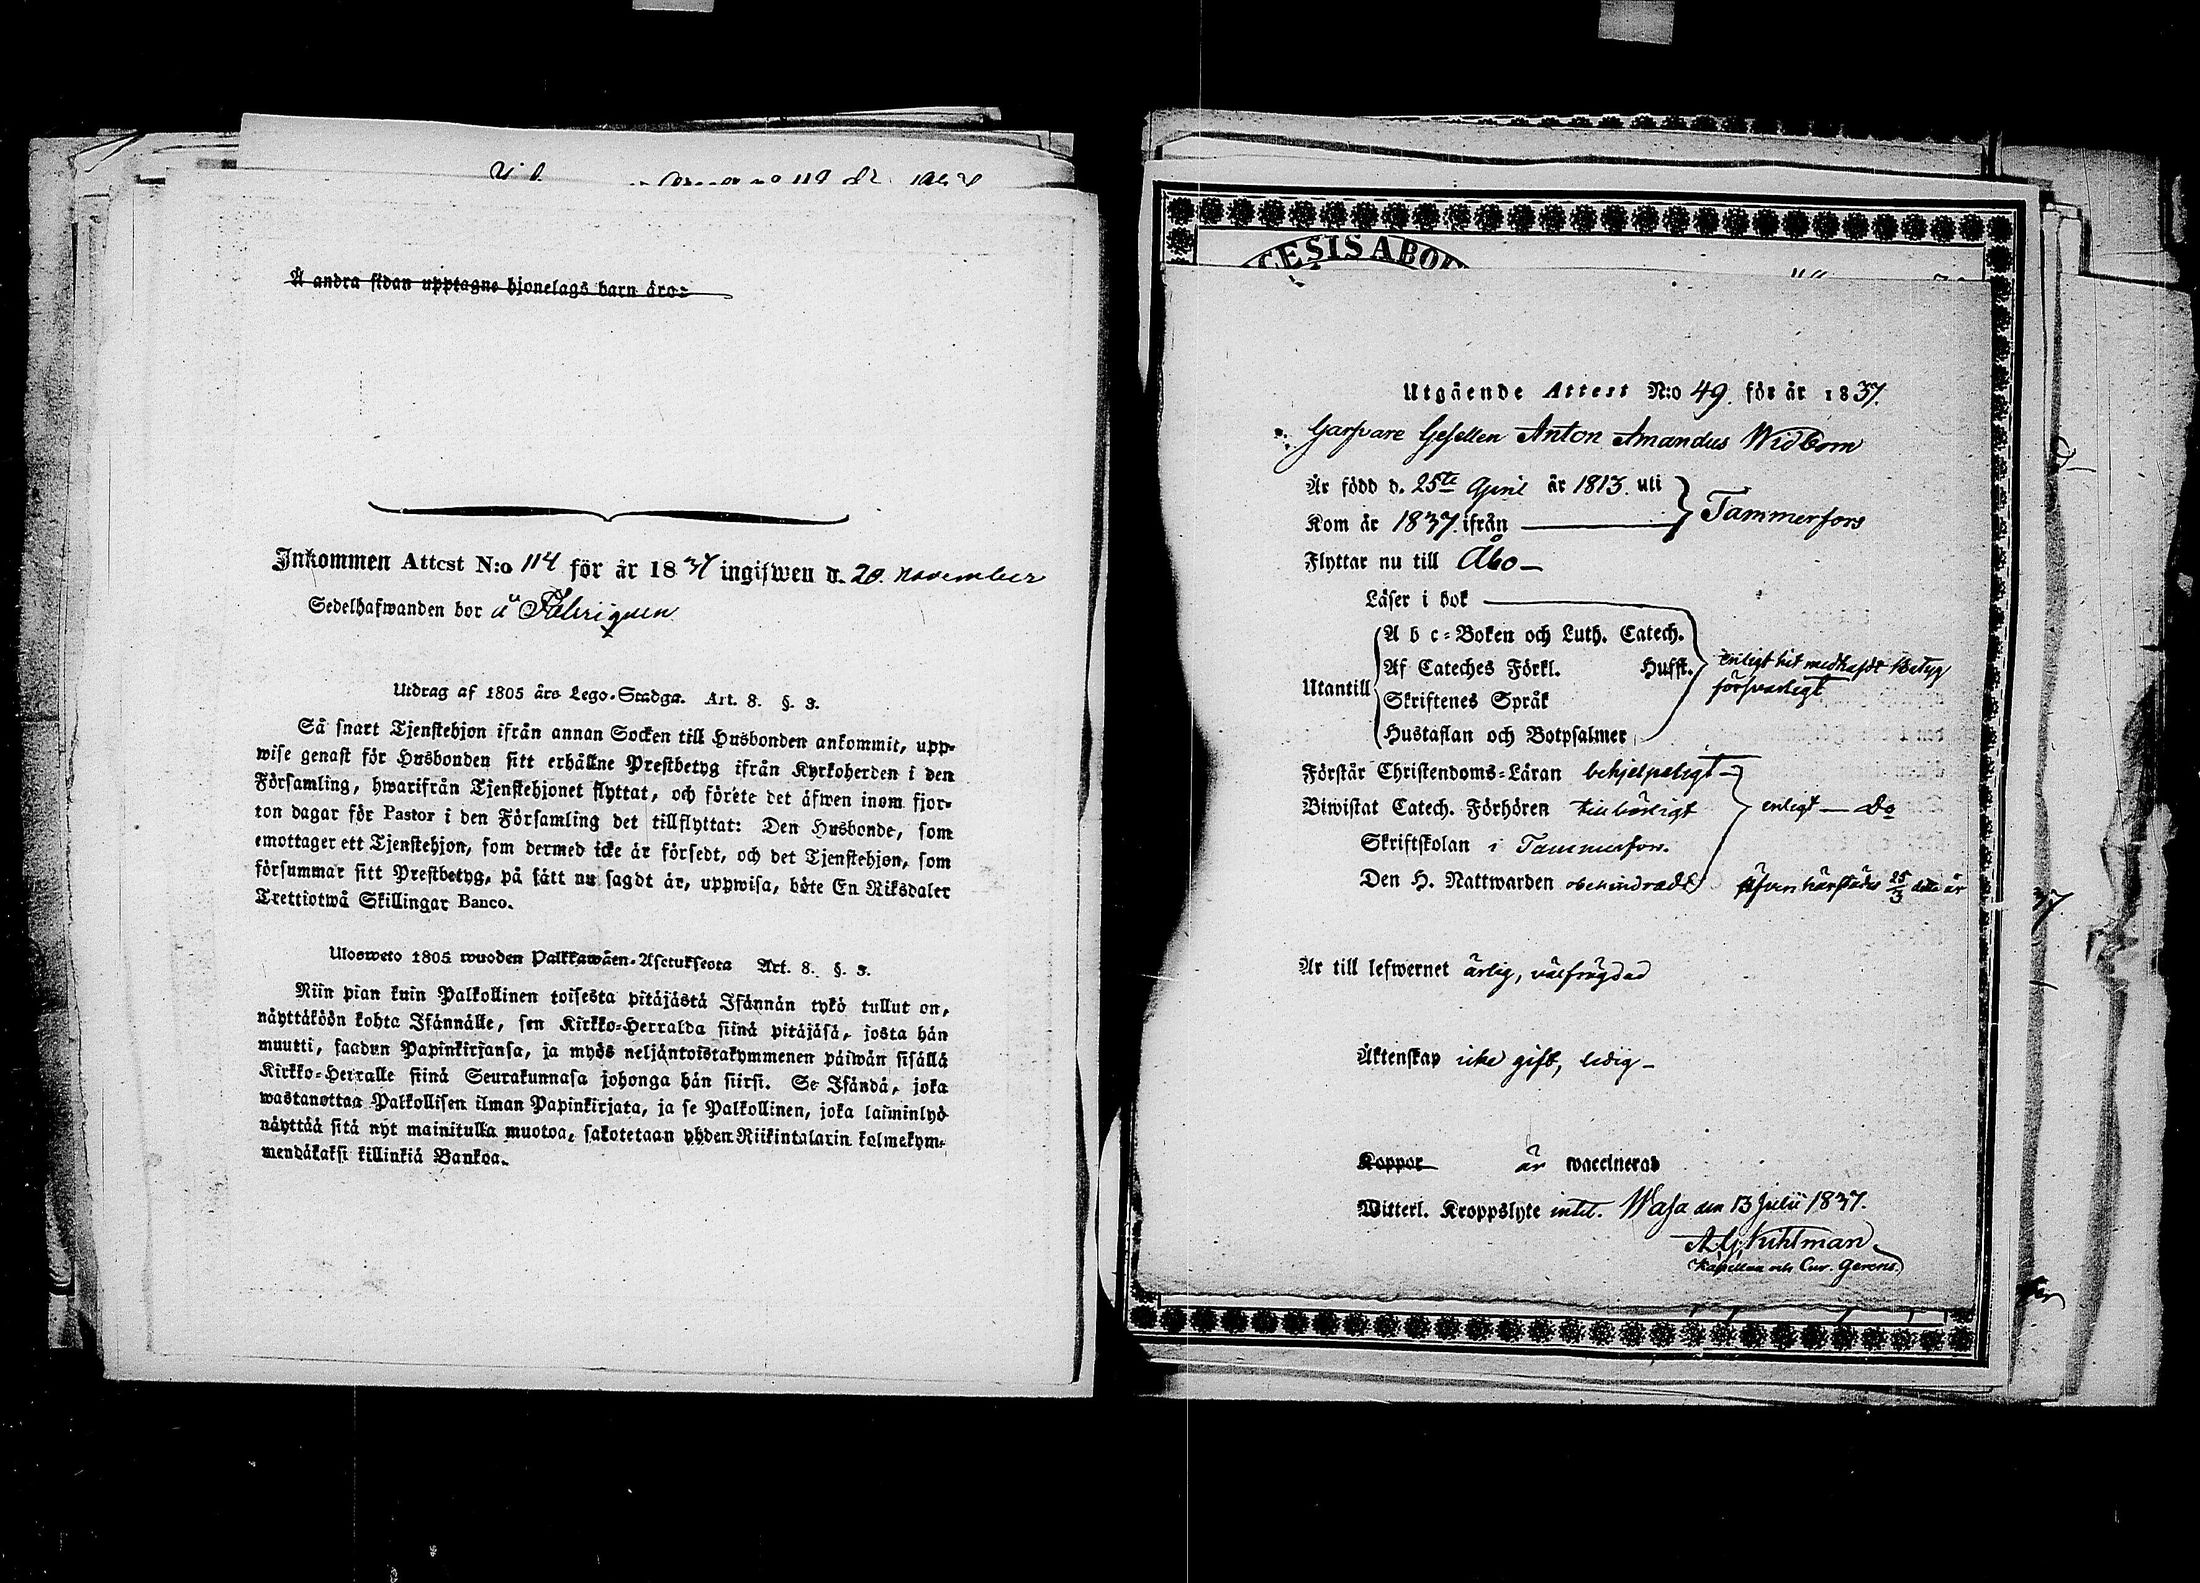 Å andra sidan upptagne hjonelags barn äro:
Inkommen Attest N:o 114 för år 1837 ingifwen d. 20 november
Sedelhafwanden bor å Fabriquen
Utdrag af 1805 års Lego-Stadga. Art. 8. §. 3.
Så snart Tjenstehjon ifrån annan Socken till Husbonden ankommit, upp-
wise genast för Husbonden sitt erhållne Prestbetyg ifrån Kyrkoherden i den
Församling, hwarifrån Tjenstehjonet flyttat, och förete det äfwen inom fjor-
ton dagar för Pastor i den Församling det tillflyttat: Den Husbonde, som
emottager ett Tjenstehjon, som dermed icke är försedt, och det Tjenstehjon, som
försummar sitt Prestbetyg, på sätt nu sagdt är, uppwisa, böte En Riksdaler
Trettiotwå Skillingar Banco.
Ulosweto 1805 wuoden Palkkawäen-Asetuksesta Art. 8. §. 3.
Niin pian kuin Palkollinen toisesta pitäjästä Isännän tykö tullut on,
näyttäköön kohta Isännälle, sen Kirkko-Herralda siinä pitäjäsä, josta hän
muutti, saadun Papinkirjansa, ja myös neljäntoistakymmenen päiwän sisällä
Kirkko-Herralle siinä Seurakunnasa johonga hän siirsi. Se Isändä, joka
wastanottaa Palkollisen ilman Papinkirjata, ja se Palkollinen, joka laiminlyö
näyttää sitä nyt mainitulla muotoa, sakotetaan yhden Riikintalarin kolmekym-
mendäkaksi killinkiä Bankoa.
CESIS ABO
Utgående Attest N:o 49. för år 1837.
Garfvare Gesellen Anton Amandus Widbom
Är född d. 25te April år 1813. uti
Kom år 1837. ifrån
Tammerfors
Flyttar nu till Åbo
Läser i bok
Utantill
A b c-Boken och Luth. Catech.
Af Cateches Förkl. Husst.
Skriftenes Språk
Hustaflan och Botpsalmer
enligt hit medhafdt Betyg
försvarligt
Förstår Christendoms-Läran behjelpeligt
Biwistat Catech. Förhören tillbörligt
enligt — Do
Skriftskolan i Tammerfors.
Den H. Nattwarden obehindradt
äfven härstädes 25/3 detta år
37.
Är till lefwernet ärlig, välfrägdad
Äktenskap icke gift, ledig
Koppor är waccinerad
Witterl. Kroppslyte intet. Wasa den 13 Julii 1837.
A. G. Kihlman
Kapellan och Cur. Gerens.